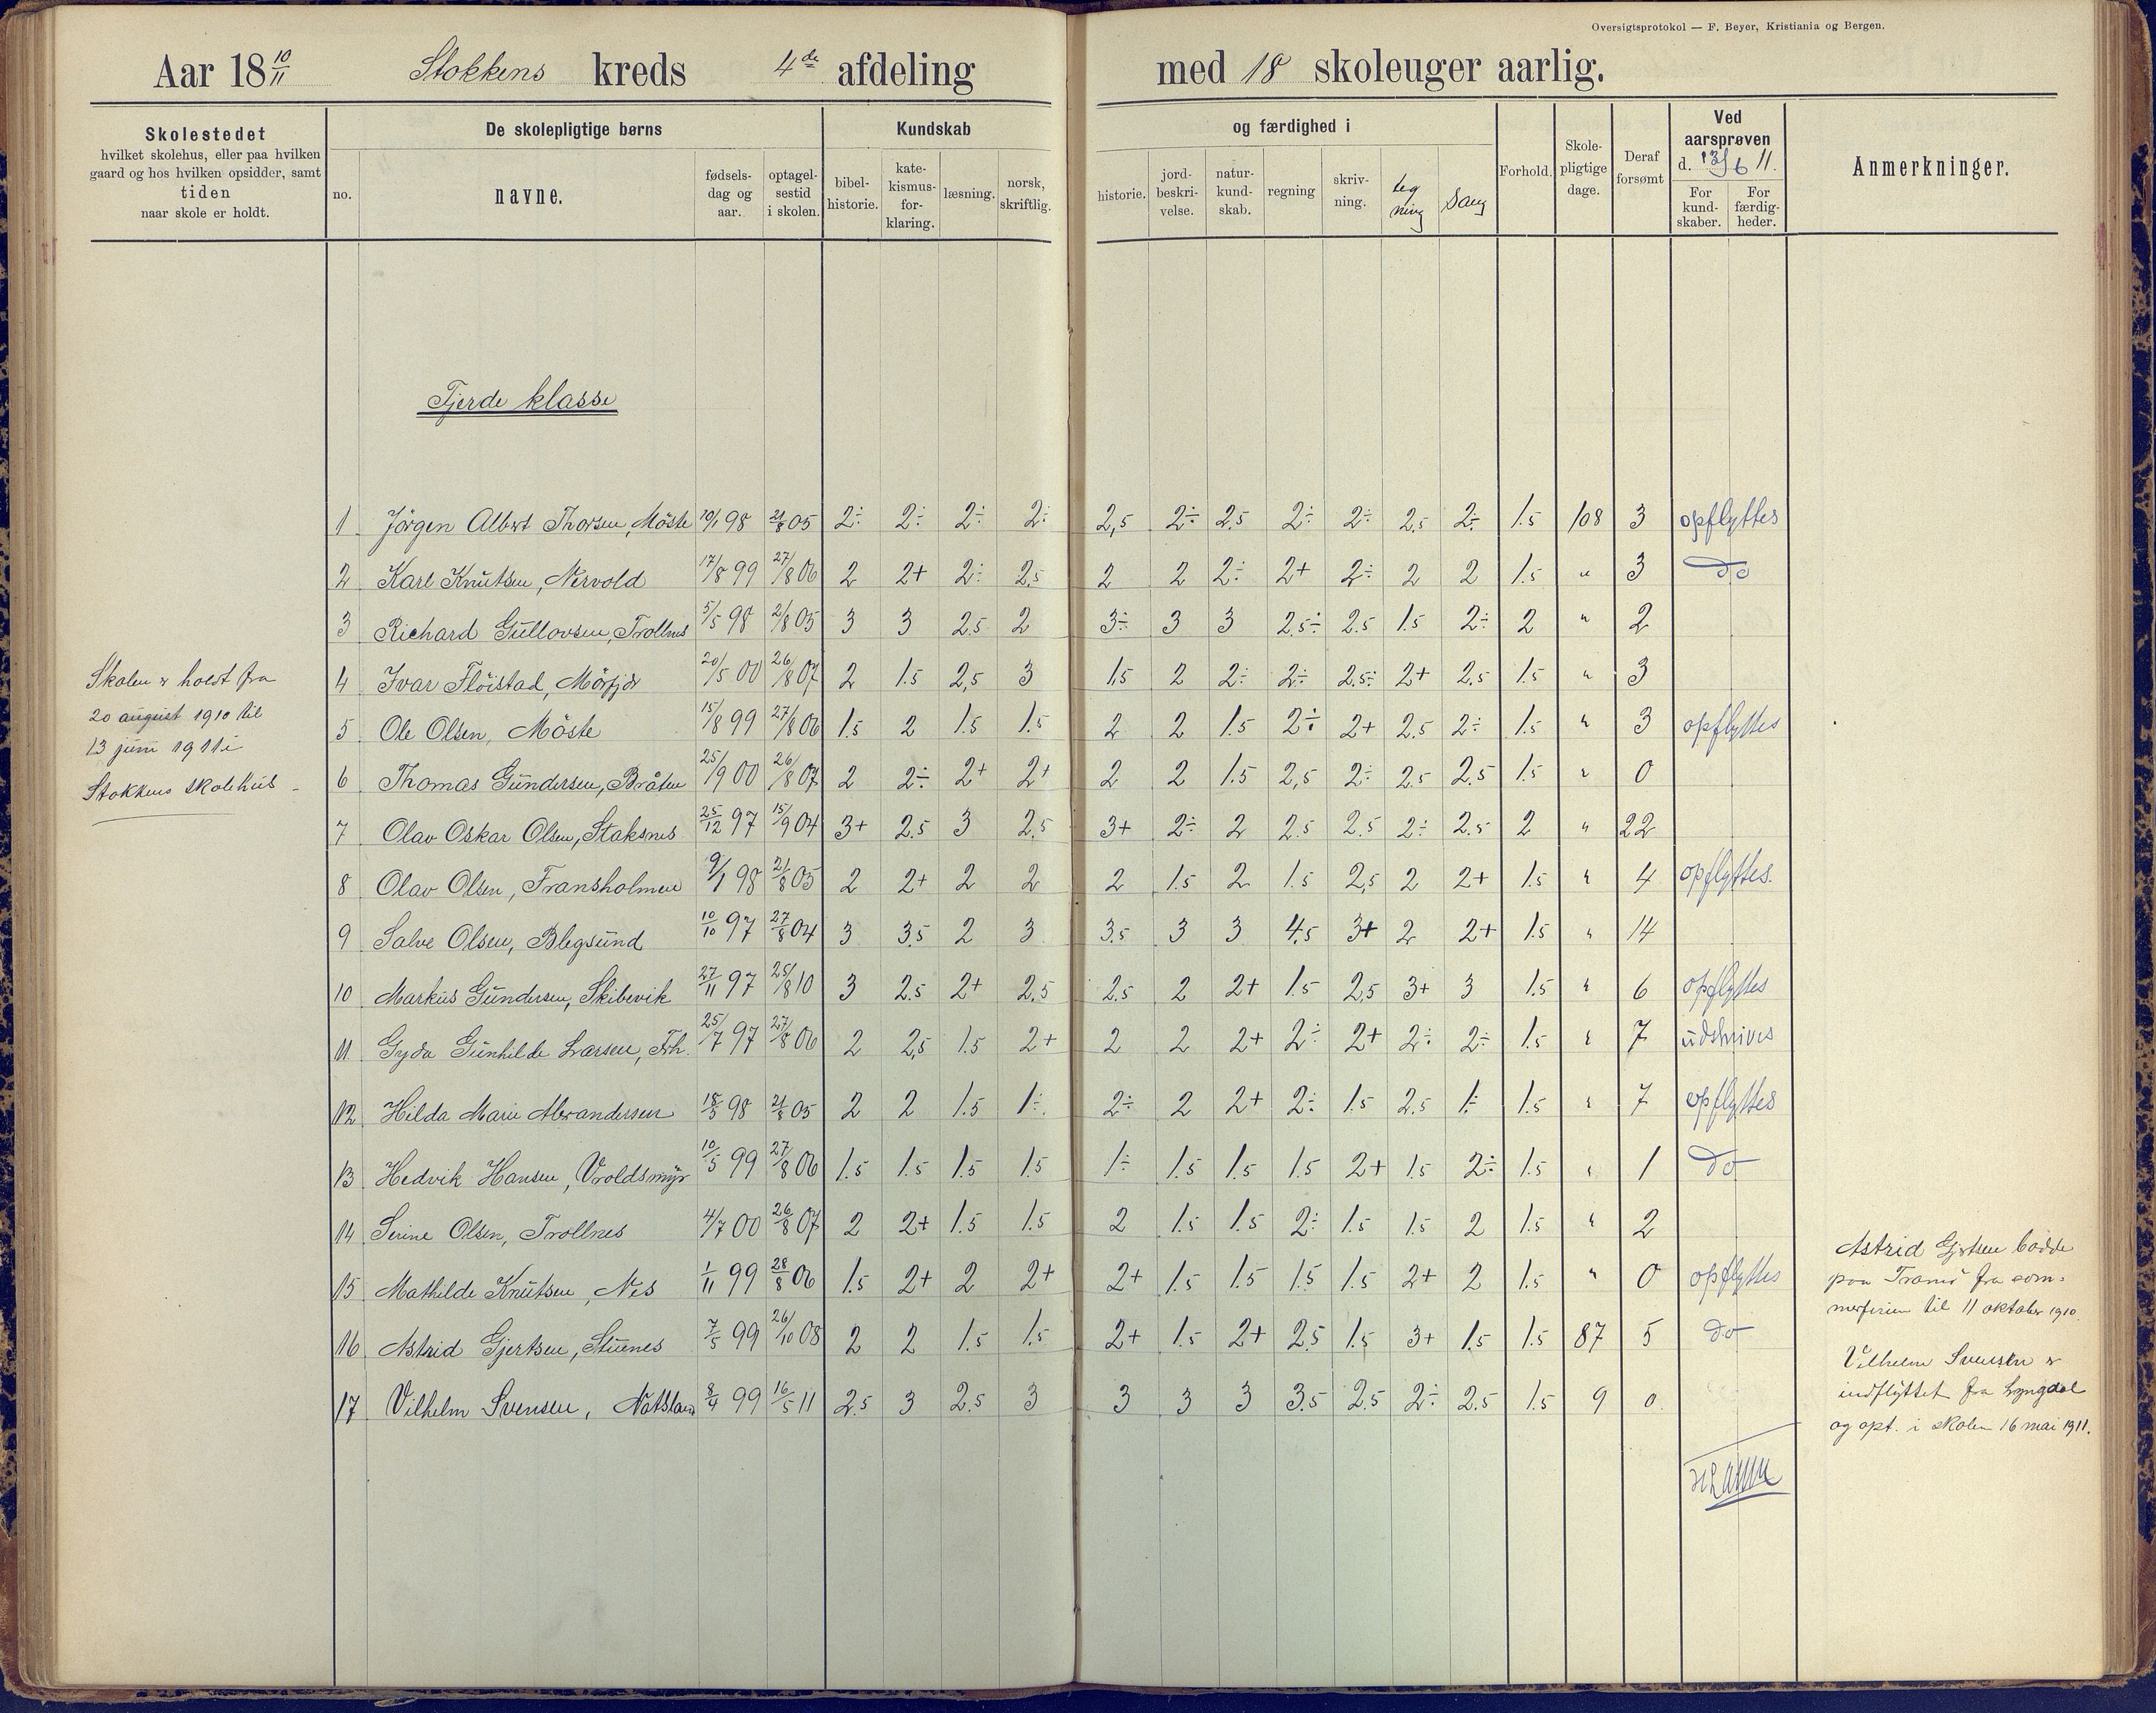 Oversigtsprotokol — F. Beyer, Kristiania og Bergen.
Aar 18 10/11 Stokkens kreds 4de afdeling med 18 skoleuger aarlig.
Skolestedet
hvilket skolehus, eller paa hvilken
gaard og hos hvilken opsidder, samt
tiden
naar skole er holdt.
De skolepligtige børns
no.
navne.
fødsels-
dag og
aar.
optagel-
sestid
i skolen.
Kundskab
bibel-
historie.
kate-
kismus-
for-
klaring.
læsning.
norsk,
skriftlig.
og færdighed i
historie.
jord-
beskri-
velse.
natur-
kund-
skab.
regning
skriv-
ning.
teg
ning
Sang
Forhold.
Skole-
pligtige
dage.
Deraf
forsømt
Ved
aarsprøven
d. 13/6 11.
For
kund-
skaber.
For
færdig-
heder.
Anmerkninger.
Fjerde klasse
1 Jörgen Albert Thorsen, Möste 10/1 98 21/8 05 2÷ 2÷ 2÷ 2÷ 2,5 2÷ 2.5 2÷ 2÷ 2,5 2÷ 1.5 108 3 opflyttes
2 Karl Knutsen, Nervold 17/8 99 27/8 06 2 2+ 2÷ 2,5 2 2 2÷ 2+ 2÷ 2 2 1.5 " 3 do
3 Richard Gullovsen, Trollnes 5/5 98 21/8 05 3 3 2.5 2 3÷ 3 3 2.5÷ 2.5 1.5 2÷ 2 " 2
4 Ivar Flöistad, Mörfjær 20/5 00 26/8 07 2 1.5 2,5 3 1.5 2 2÷ 2÷ 2.5÷ 2+ 2.5 1.5 " 3
5 Ole Olsen, Möste 15/8 99 27/8 06 1.5 2 1.5 1.5 2 2 1.5 2÷ 2+ 2.5 2÷ 1.5 " 3 opflyttes
6 Thomas Gundersen, Bråten 25/9 00 26/8 07 2 2÷ 2+ 2+ 2 2 1.5 2,5 2÷ 2.5 2.5 1.5 " 0
7 Olav Oskar Olsen, Staksnes 25/12 97 15/9 04 3+ 2.5 3 2.5 3+ 2÷ 2 2.5 2.5 2÷ 2.5 2 " 22
8 Olav Olsen, Fransholmen 9/1 98 21/8 05 2 2+ 2 2 2 1.5 2 1.5 2,5 2 2+ 1.5 " 4 opflyttes.
9 Salve Olsen, Blegsund 10/10 97 27/8 04 3 3.5 2 3 3.5 3 3 4.5 3+ 2 2+ 1.5 " 14
10 Markus Gundersen, Skibevik 27/11 97 25/8 10 3 2.5 2+ 2.5 2.5 2 2+ 1.5 2,5 3+ 3 1.5 " 6 opflyttes
11 Gyda Gunhilde Larsen, Frh. 25/7 97 27/8 06 2 2,5 1.5 2+ 2 2 2+ 2÷ 2+ 2÷ 2÷ 1.5 " 7 udskrives
12 Hilda Marie Alexandersen 18/5 98 21/8 05 2 2 1.5 1÷ 2÷ 2 2+ 2÷ 1.5 2.5 1÷ 1.5 " 7 opflyttes
13 Hedvik Hansen, Vroldsmyr 10/5 99 27/8 06 1.5 1.5 1.5 1.5 1÷ 1.5 1.5 1.5 2+ 1.5 2÷ 1.5 " 1 do
14 Serine Olsen, Trollnes 4/7 00 26/8 07 2 2+ 1.5 1.5 2 1.5 1.5 2÷ 1.5 1.5 2 1.5 " 2
15 Mathilde Knutsen, Nes 1/11 99 28/8 06 1.5 2+ 2 2+ 2+ 1.5 1.5 1.5 1.5 2+ 2 1.5 " 0 opflyttes
16 Astrid Gjertsen, Stuenes 7/5 99 26/10 08 2 2 1.5 1.5 2+ 1.5 2+ 2.5 1.5 3+ 1.5 1.5 87 5 do
17 Vilhelm Svensen, 8/4 99 16/5 11 2.5 3 2.5 3 3 3 3 3.5 2.5 2÷ 2.5 1.5 9 0
Skolen er holdt fra
20 august 1910 til
13 juni 1911 i
Stokkens skolehus
Astrid Gjertsen bodde
paa Tromö fra som-
merferien til 11 oktober 1910.
Vilhelm Svensen er
indflyttet fra Lyngdal
og opt. i skolen 16 mai 1911.